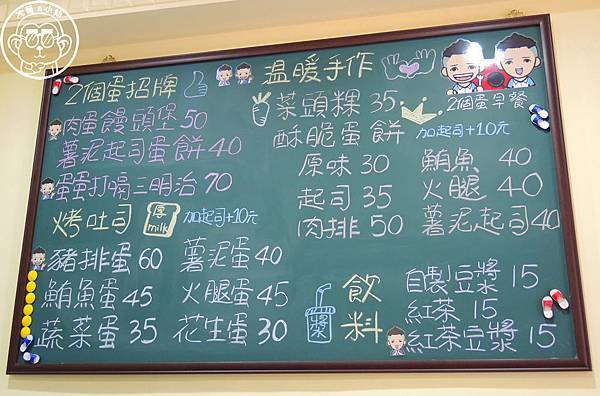 2個蛋招牌
肉蛋饅頭堡50
薯泥起司蛋餅40
蛋蛋打嗝三明治70
烤吐司 厚 milk 加起司+10元
豬排蛋60 薯泥蛋40
鮪魚蛋45 火腿蛋45
蔬菜蛋35 花生蛋30
溫暖手作
2個蛋早餐
菜頭粿35
酥脆蛋餅 加起司+10元
原味30 鮪魚40
起司35 火腿40
肉排50 薯泥起司40
飲料
漿
自製豆漿15
紅茶15
紅茶豆漿15